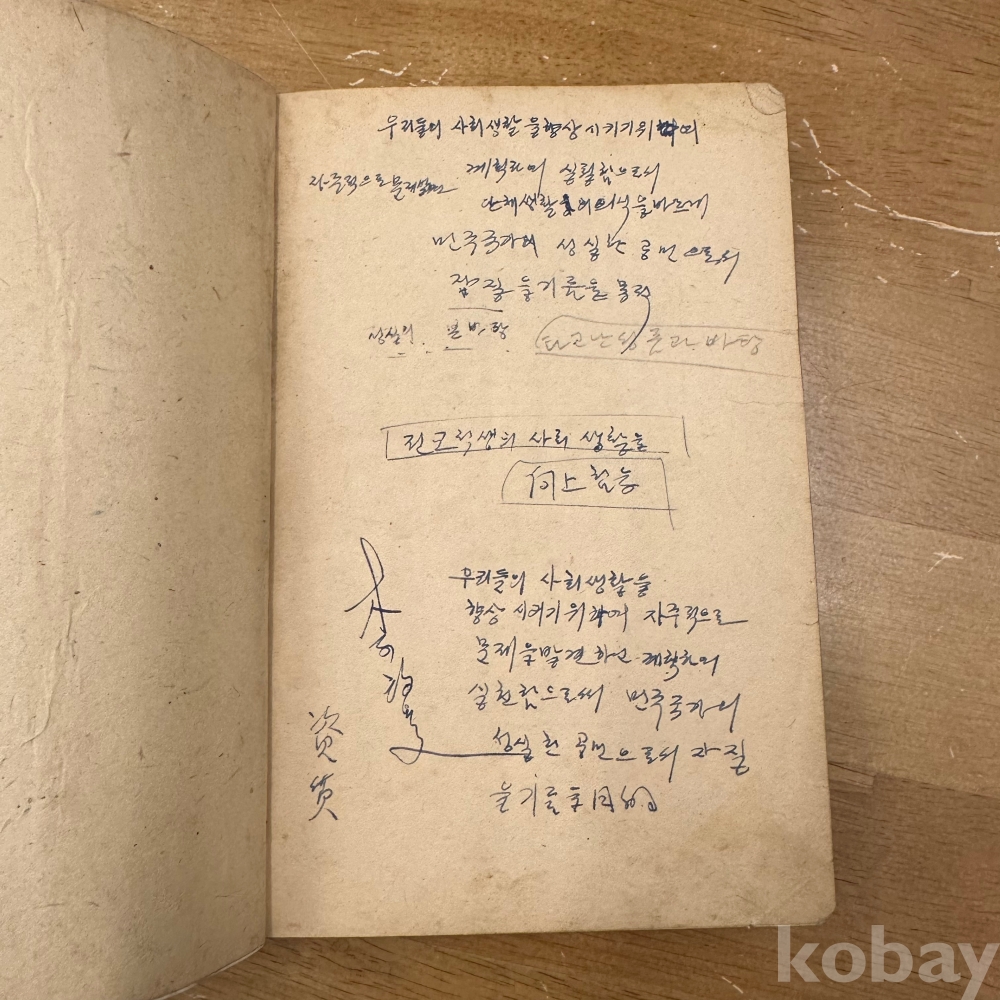 우리들의 사회생활을향상시키기위하여
자주적으로문제발견
계획하며 실천함으로써
단체생활의의식을바르게
민주국가의 성실한 공민으로서
자질을기름을목적
성실의 본바탕
타고난성품과바탕
학생의 사회생활을
向上함을
우리들의 사회생활을
향상시키기위하여 자주적으로
문제를발견하는 계획하며
실천함으로써 민주국가의
성실한 공민으로서 자질
을기를主目的
資質
kobay